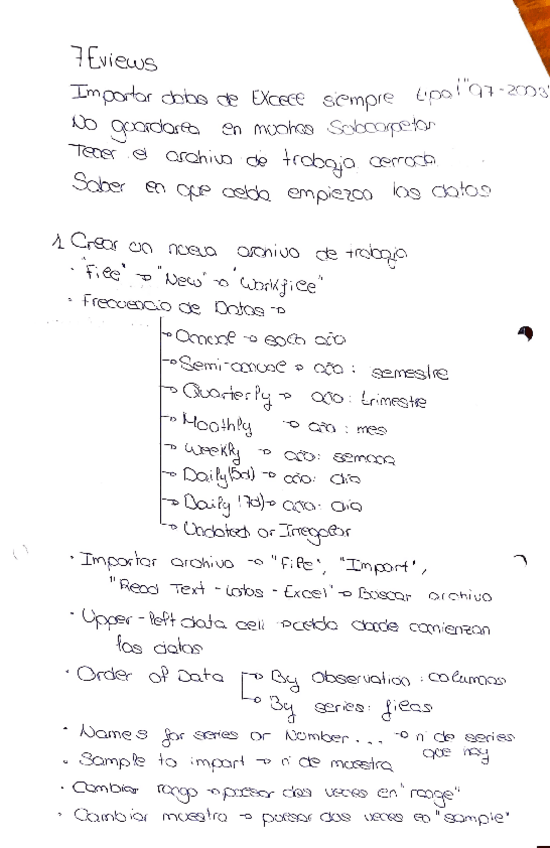 7 Eviews
Importar datos de Excel siempre tipo "97-2003"
No guardarlo en muchas Subcarpetas
Tener el archivo de trabajo cerrado
Saber en que celda empiezan los datos
1. Crear un nuevo archivo de trabajo
· "File" → "New" → "Workfile"
· Frecuencia de Datos →
→ Annual → cada año
→ Semi-annual → año: semestre
→ Quarterly → año: trimestre
→ Monthly → año: mes
→ Weekly → año: semana
→ Daily (5d) → año: día
→ Daily (7d) → año: día
→ Undated or Irregular
· Importar archivo → "File", "Import",
"Read Text - Lotus - Excel" → Buscar archivo
· Upper-left data cell → celda donde comienzan
los datos
· Order of Data → By Observation: columnas
→ By series: filas
· Names for series or Number... → nº de series
que hay
· Sample to import → nº de muestra
· Cambiar rango → pulsar dos veces en "range"
· Cambiar muestra → pulsar dos veces en "sample"